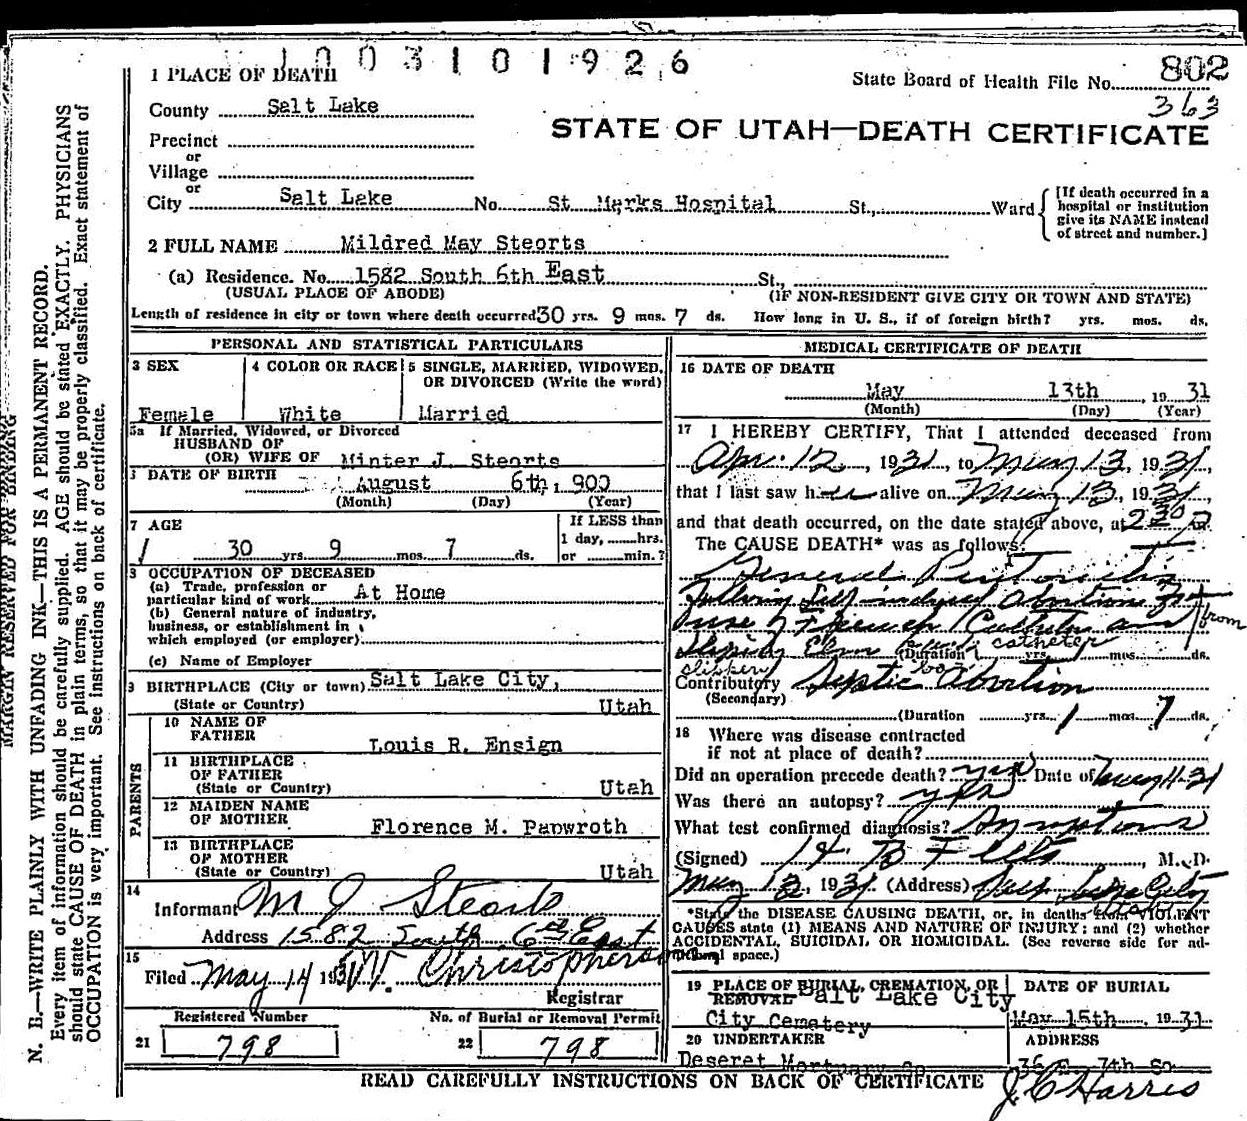 1 0 0 3 1 0 1 9 2 6
1 PLACE OF DEATH
State Board of Health File No. 802
363
County Salt Lake
STATE OF UTAH—DEATH CERTIFICATE
Precinct
or
Village
or
City Salt Lake No. St Marks Hospital St., Ward
[If death occurred in a
hospital or institution
give its NAME instead
of street and number.]
2 FULL NAME Mildred May Steorts
(a) Residence. No. 1582 South 6th East St.,
(USUAL PLACE OF ABODE) (IF NON-RESIDENT GIVE CITY OR TOWN AND STATE)
Length of residence in city or town where death occurred 30 yrs. 9 mos. 7 ds. How long in U. S., if of foreign birth? yrs. mos. ds.
PERSONAL AND STATISTICAL PARTICULARS
3 SEX
Female
4 COLOR OR RACE
White
5 SINGLE, MARRIED, WIDOWED,
OR DIVORCED (Write the word)
Married
5a If Married, Widowed, or Divorced
HUSBAND OF
(OR) WIFE OF Minter J. Steorts
DATE OF BIRTH August 6th, 900
(Month) (Day) (Year)
7 AGE
30 yrs. 9 mos. 7 ds.
If LESS than
1 day, hrs.
or min.?
8 OCCUPATION OF DECEASED
(a) Trade, profession or
particular kind of work At Home
(b) General nature of industry,
business, or establishment in
which employed (or employer)
(c) Name of Employer
9 BIRTHPLACE (City or town) Salt Lake City,
(State or Country) Utah
PARENTS
10 NAME OF
FATHER Louis R. Ensign
11 BIRTHPLACE
OF FATHER
(State or Country) Utah
12 MAIDEN NAME
OF MOTHER Florence M. Papwroth
13 BIRTHPLACE
OF MOTHER
(State or Country) Utah
14
Informant M J Steorts
Address 1582 South 6th East
15
Filed May 14 1931 Christopherson
Registrar
Registered Number No. of Burial or Removal Permit
21 798 22 798
MEDICAL CERTIFICATE OF DEATH
16 DATE OF DEATH
May 13th, 1931
(Month) (Day) (Year)
17 I HEREBY CERTIFY, That I attended deceased from
Apr. 12, 1931, to May 13, 1931,
that I last saw her alive on May 13, 1931,
and that death occurred, on the date stated above, at 2:30
The CAUSE DEATH* was as follows:
General Peritonitis
following self induced abortion
from
use of French Catheter and
catheter
Slippery Elm (Duration yrs. mos. ds.
Contributory Septic Abortion
(Secondary)
(Duration yrs. 1 mos. 7 ds.
18 Where was disease contracted
if not at place of death?
Did an operation precede death? yes Date of May 11-31
Was there an autopsy? yes
What test confirmed diagnosis? Symptoms
(Signed) , M. D.
May 13, 1931 (Address) Salt Lake City
*State the DISEASE CAUSING DEATH, or, in deaths from VIOLENT
CAUSES state (1) MEANS AND NATURE OF INJURY; and (2) whether
ACCIDENTAL, SUICIDAL OR HOMICIDAL. (See reverse side for ad-
ditional space.)
19 PLACE OF BURIAL, CREMATION, OR
REMOVAL Salt Lake City
City Cemetery
DATE OF BURIAL
May 15th, 1931
20 UNDERTAKER
Deseret Mortuary Co
ADDRESS
36 E 7th So
J C Harris
READ CAREFULLY INSTRUCTIONS ON BACK OF CERTIFICATE
MARGIN RESERVED FOR BINDING
N. B.—WRITE PLAINLY WITH UNFADING INK—THIS IS A PERMANENT RECORD.
Every item of information should be carefully supplied. AGE should be stated EXACTLY. PHYSICIANS
should state CAUSE OF DEATH in plain terms, so that it may be properly classified. Exact statement of
OCCUPATION is very important. See instructions on back of certificate.